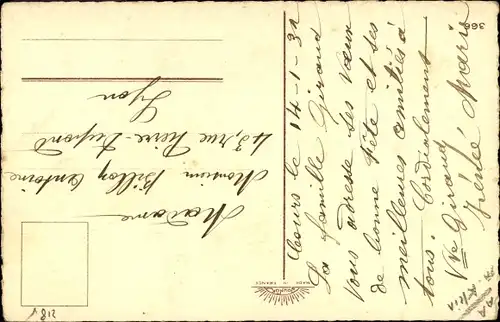 Cours le 14-1-31
La famille Giraud
vous adresse ses vœux
de bonne fête et ses
meilleures amitiés à
tous. Cordialement
Vve Giraud
Marie
Madame
Monsieur Billon Antoine
43 rue Pierre-Dupond
Lyon
MADE IN FRANCE